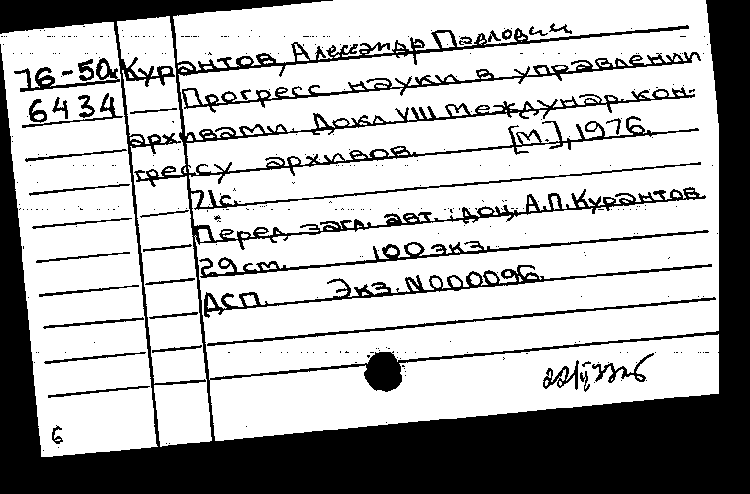 76-50к Курантов, Александр Павлович
6434 Прогресс науки в управлении
архивами. Докл. VIII Междунар. кон-
грессу архивов. [М.], 1976.
71с.
Перед загл. авт.: доц. А.П. Курантов
29см. 100экз.
ДСП. Экз. N000096.
6